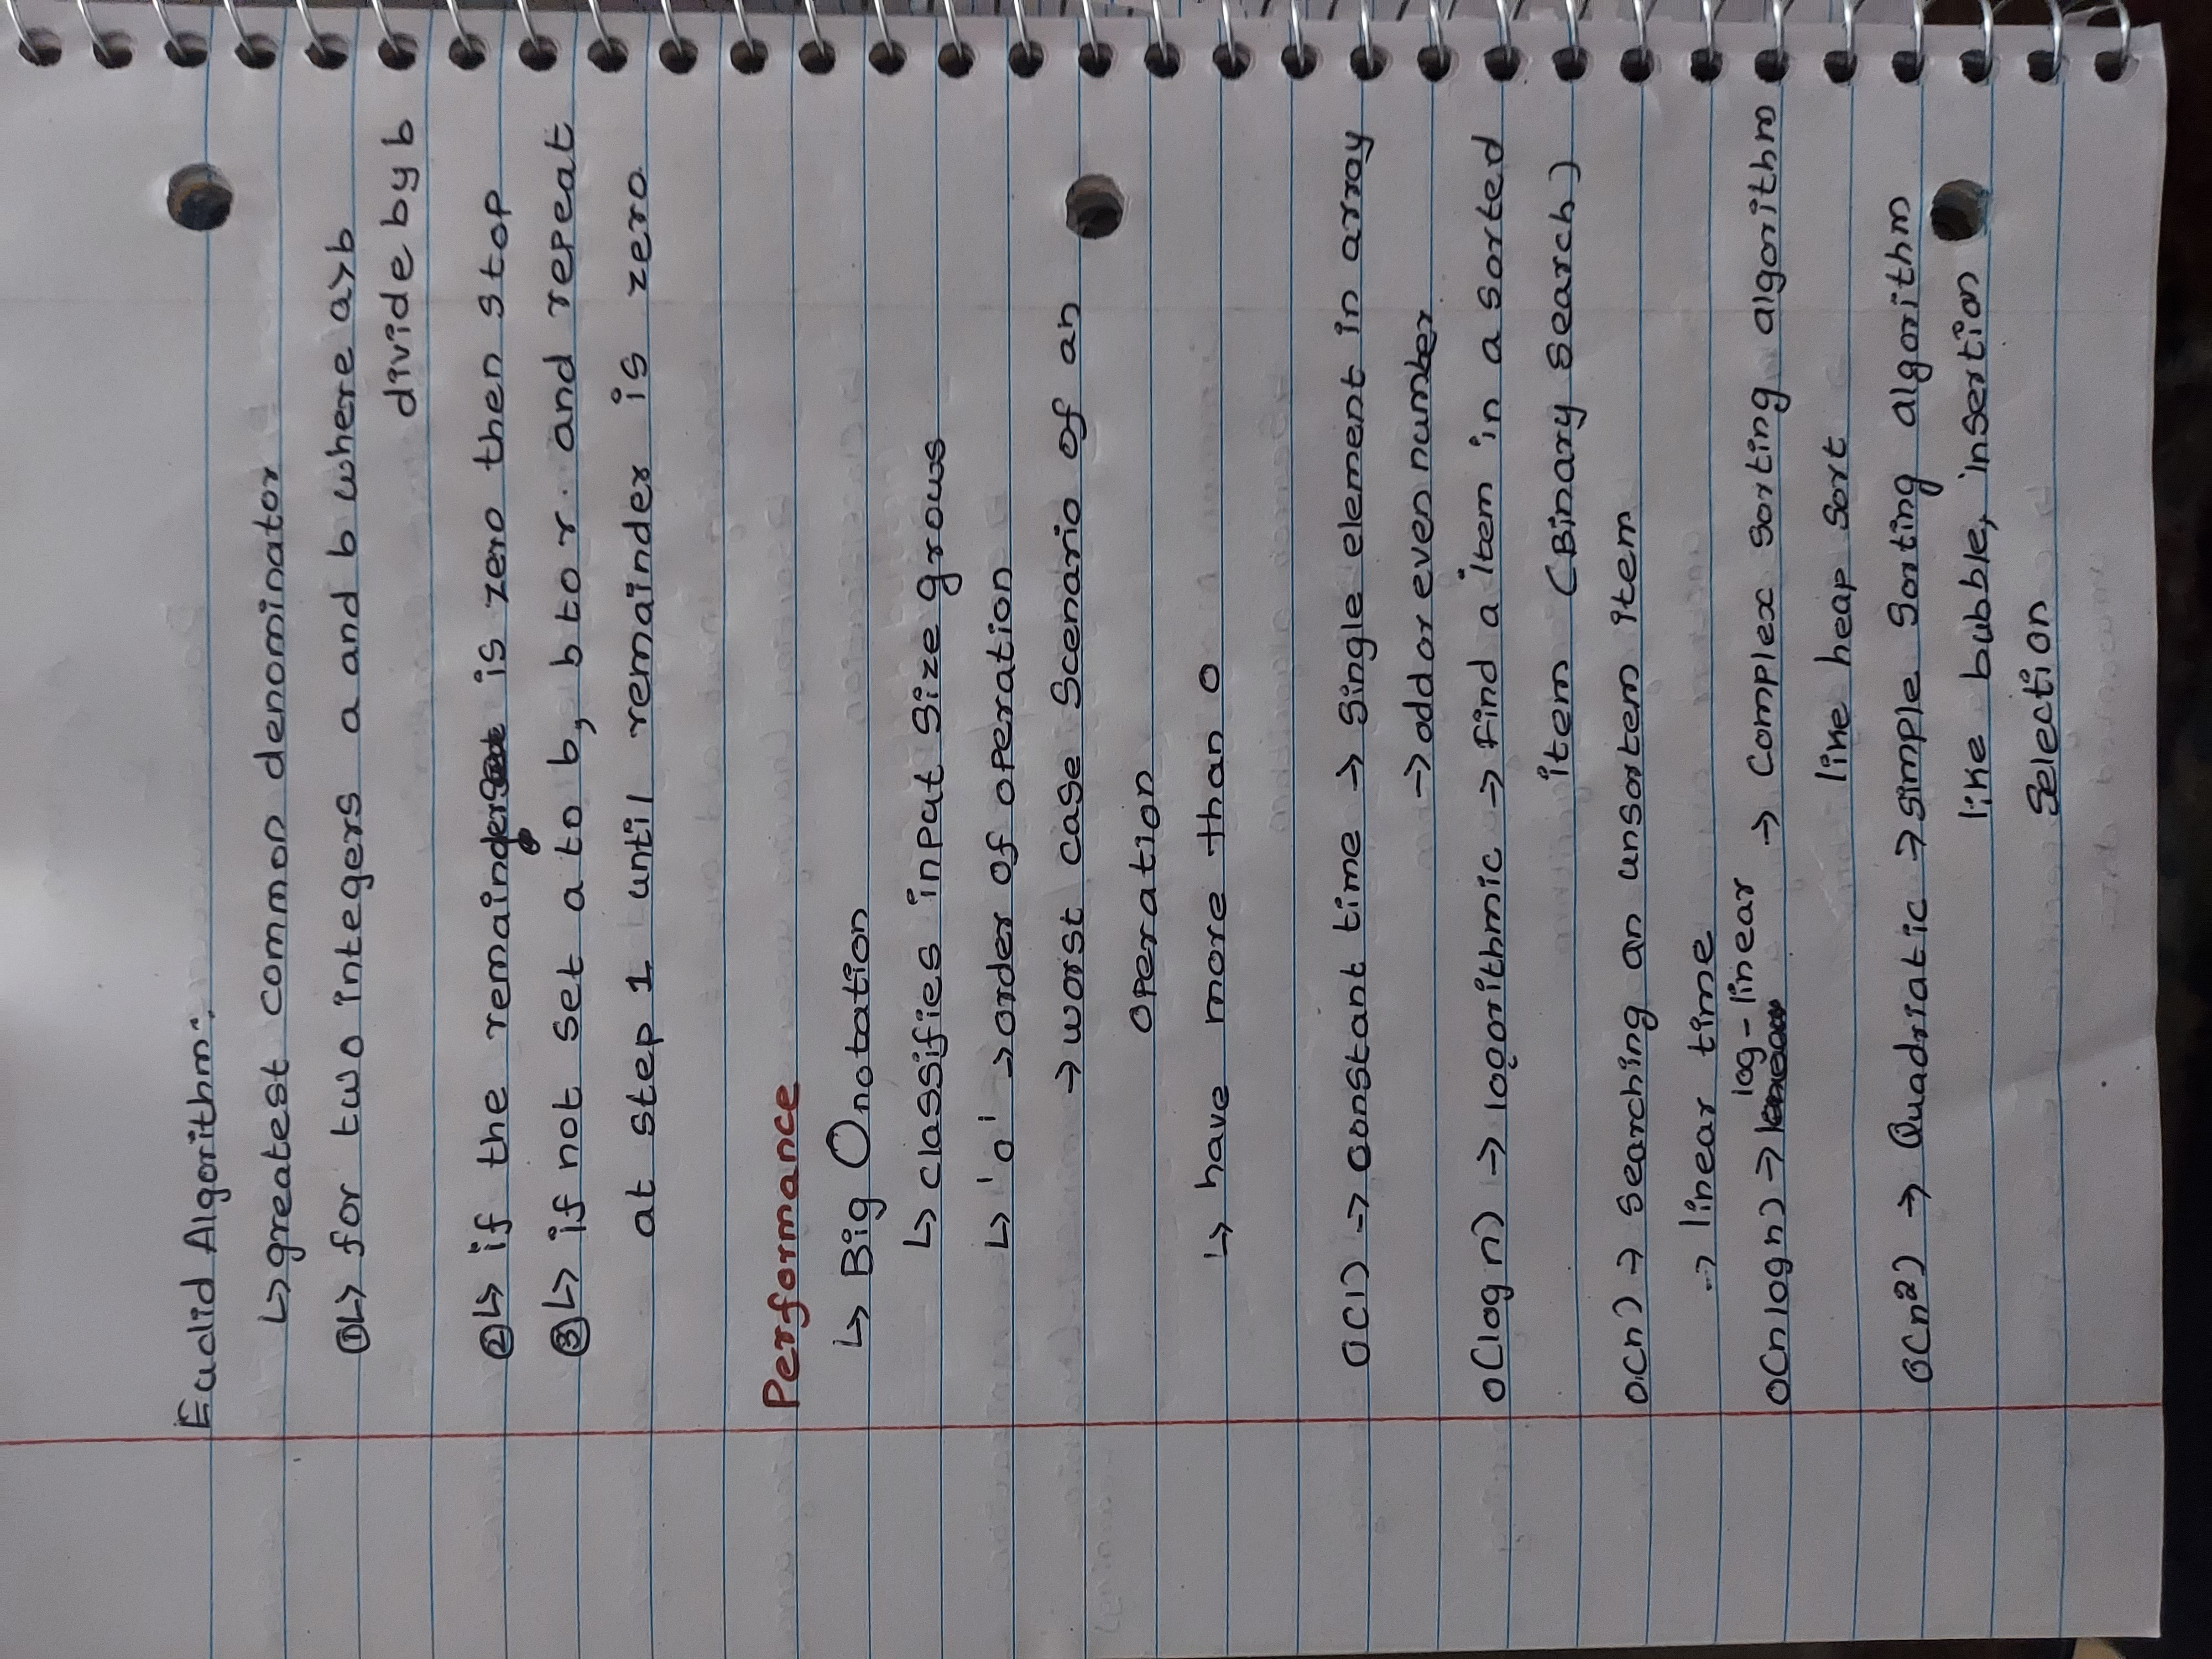 Euclid Algorithm:
↳ greatest common denominator
① ↳ for two integers a and b where a>b
divide by b
② ↳ if the remainder is zero then stop
③ ↳ if not set a to b, b to r. and repeat
at step 1 until remainder is zero.
Performance
↳ Big O notation
↳ classifies input size grows
↳ 'o' → order of operation
→ worst case scenario of an
operation
↳ have more than O
O(1) → constant time → single element in array
→ odd or even number
O(log n) → logorithmic → Find a item in a sorted
item (Binary search)
O(n) → searching an unsortem item
→ linear time
log-linear
O(n log n) → → Complex sorting algorithm
like heap sort
O(n²) → Quadriatic → simple sorting algorithm
like bubble, insertion
selection